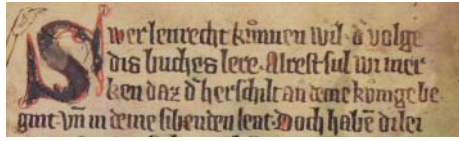 Swer lenrecht kůnnen wil· d̓ volge
dis buches lere· Alrest sul wi mer
ken daz d̓ herschilt an deme kůnige be
gint· vn̄ in deme sibenden lent· Doch habē di lei